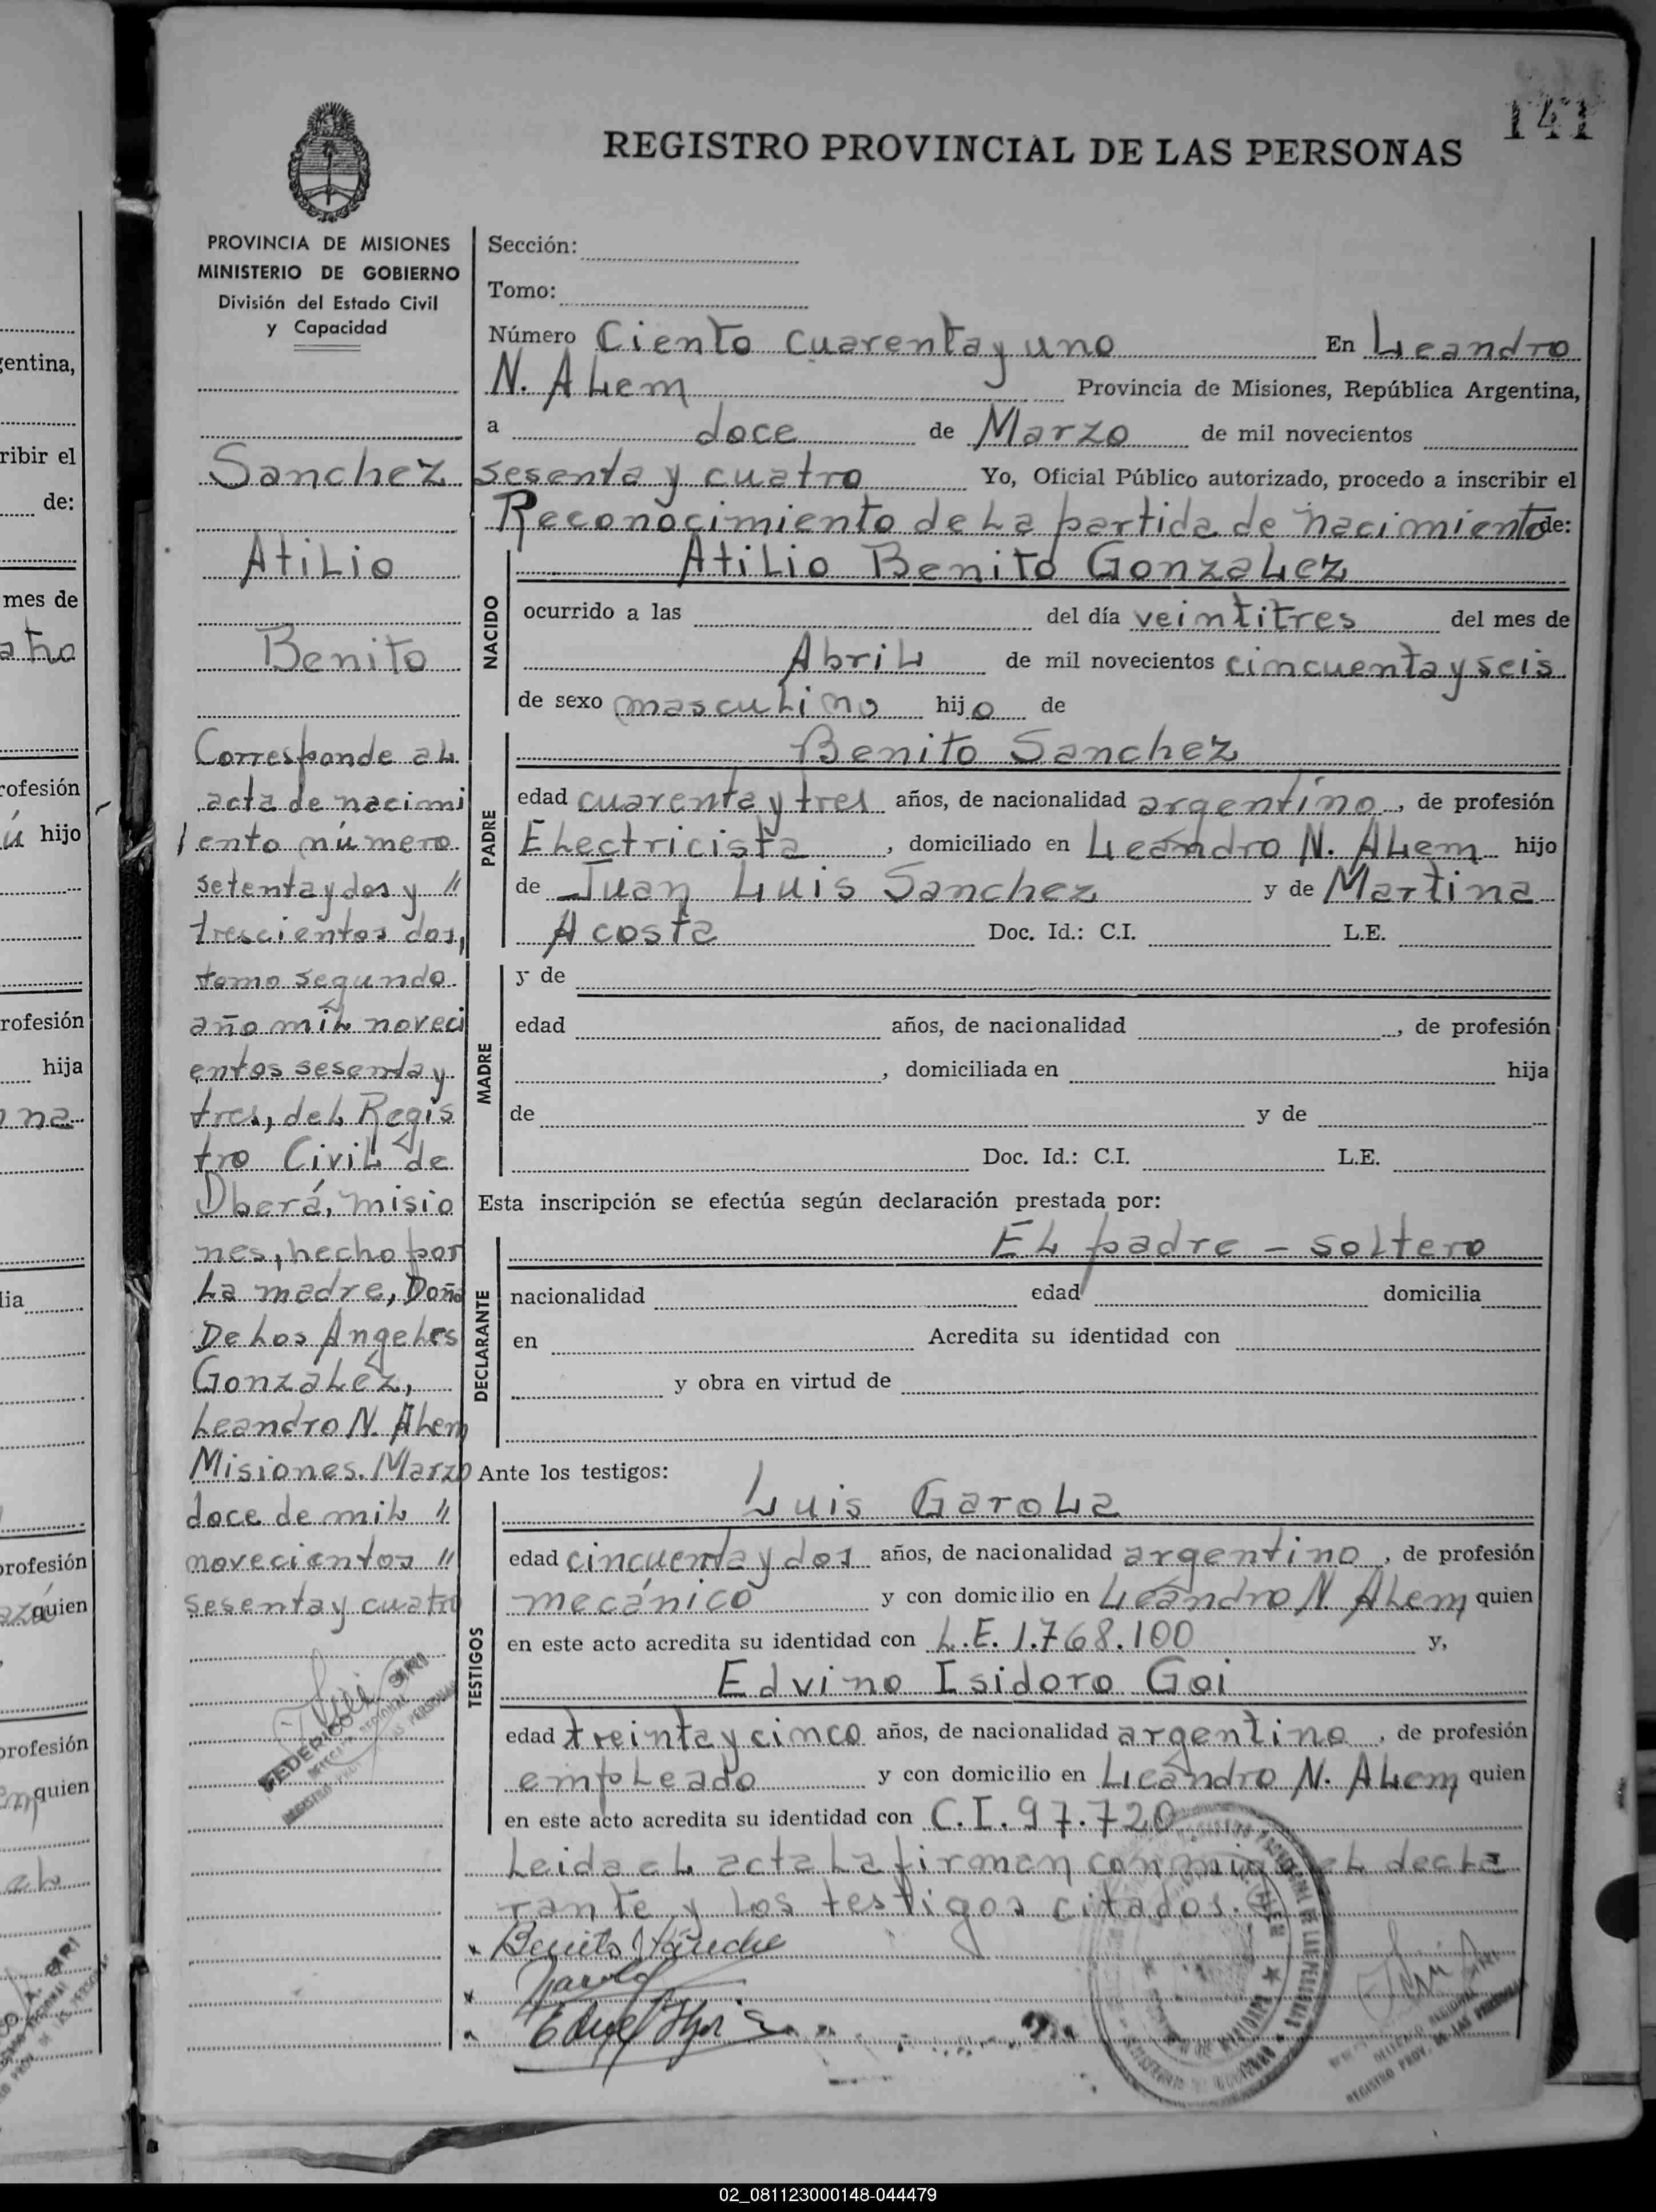 141
REGISTRO PROVINCIAL DE LAS PERSONAS
PROVINCIA DE MISIONES
MINISTERIO DE GOBIERNO
División del Estado Civil
y Capacidad
Sanchez
Atilio
Benito
Corresponde al
acta de nacimi
ento número
setenta y dos y "
trescientos dos,
tomo segundo
año mil noveci
entos sesenta y
tres, del Regis
tro Civil de
Oberá, misio
nes, hecho por
La madre, Doña
De Los Angeles
Gonzalez,
Leandro N. Alem
Misiones. Marzo
doce de mil "
novecientos "
sesenta y cuatro
FEDERICO SIRI
Sección:
Tomo:
Número Ciento cuarenta y uno En Leandro
N. Alem Provincia de Misiones, República Argentina,
a doce de Marzo de mil novecientos
sesenta y cuatro Yo, Oficial Público autorizado, procedo a inscribir el
Reconocimiento de La partida de nacimiento de:
NACIDO
Atilio Benito Gonzalez
ocurrido a las del día veintitres del mes de
Abril de mil novecientos cincuenta y seis
de sexo masculino hijo de
PADRE
Benito Sanchez
edad cuarenta y tres años, de nacionalidad argentino, de profesión
Electricista, domiciliado en Leandro N. Alem hijo
de Juan Luis Sanchez y de Martina
Acosta Doc. Id.: C.I. L.E.
MADRE
y de
edad años, de nacionalidad , de profesión
, domiciliada en hija
de y de
Doc. Id.: C.I. L.E.
Esta inscripción se efectúa según declaración prestada por:
DECLARANTE
El padre - soltero
nacionalidad edad domicilia
en Acredita su identidad con
y obra en virtud de
Ante los testigos:
TESTIGOS
Luis Garola
edad cincuenta y dos años, de nacionalidad argentino, de profesión
mecánico y con domicilio en Leandro N. Alem quien
en este acto acredita su identidad con L.E. 1.768.100 y,
Edvino Isidoro Goi
edad treinta y cinco años, de nacionalidad argentino, de profesión
empleado y con domicilio en Leandro N. Alem quien
en este acto acredita su identidad con C.I. 97.720
Leida el acta La firman conmigo el decla
rante y Los testigos citados.
Benito Sanche
DELEGADO REGIONAL
REGISTRO PROV. DE LAS PERSONAS
gentina,
ribir el
de:
mes de
rofesión
hijo
rofesión
hija
na
lia
profesión
quien
profesión
quien
02_081123000148-044479